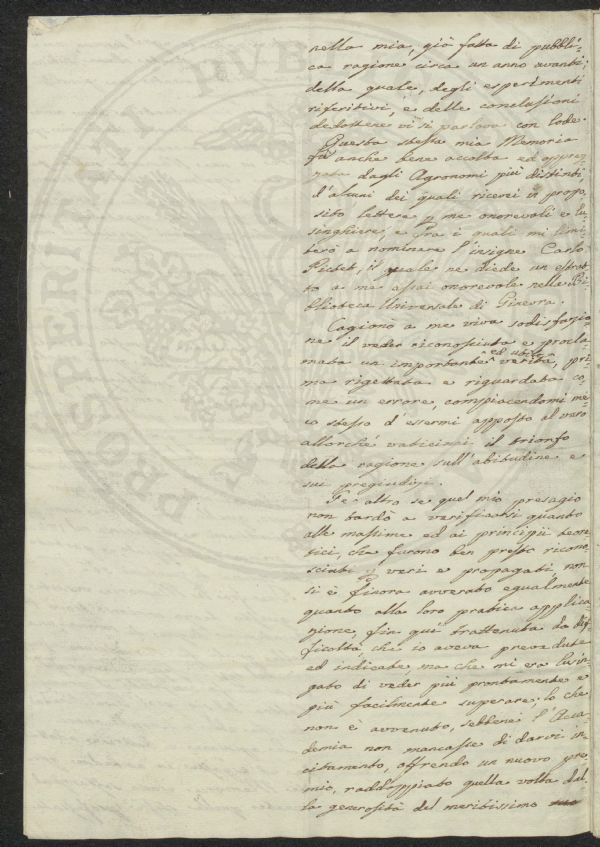 nella mia, già fatta di pubbli-
ca ragione circa un anno avanti;
della quale, degli esperimenti
riferitivi, e delle conclusioni
dedottene vi si parlava con lode.
Questa stessa mia Memoria
fu anche bene accolta ed apprez-
zata dagli Agronomi più distinti
d'alcuni dei quali ricevei in propo-
sito lettere p me onorevoli e lu-
singhiere; e fra i quali mi limi-
terò a nominare l'insigne Carlo
Pictet, il quale ne diede un estrat-
to a me assai onorevole nella Bi-
blioteca Universale di Ginevra.
Cagionò a me viva sodisfazio-
ne il veder riconosciuta e procla-
mata un importante ed utile verità, pri-
ma rigettata e riguardata co-
me un errore, compiacendomi me-
co stesso d'essermi apposto al vero
allorché vaticinai il trionfo
della ragione sull'abitudine e
sui pregiudizj.
Per altro se quel mio presagio
non tardò a verificarsi quanto
alle massime ed ai principii teore-
tici, che furono ben presto ricono-
sciuti p veri e propagati, non
si è finora avverato egualmente
quanto alla loro pratica applica-
zione, fin quì trattenuta da dif-
ficoltà, che io aveva prevedute
ed indicate ma che mi era lusin-
gato di veder più prontamente e
più facilmente superare; lo che
non è avvenuto, sebbene l'Acca-
demia non mancasse di darvi in-
citamento, offrendo un nuovo pre-
mio, raddoppiato quella volta dal-
la generosità del meritissimo
PROSPERITATI PUBLICAE